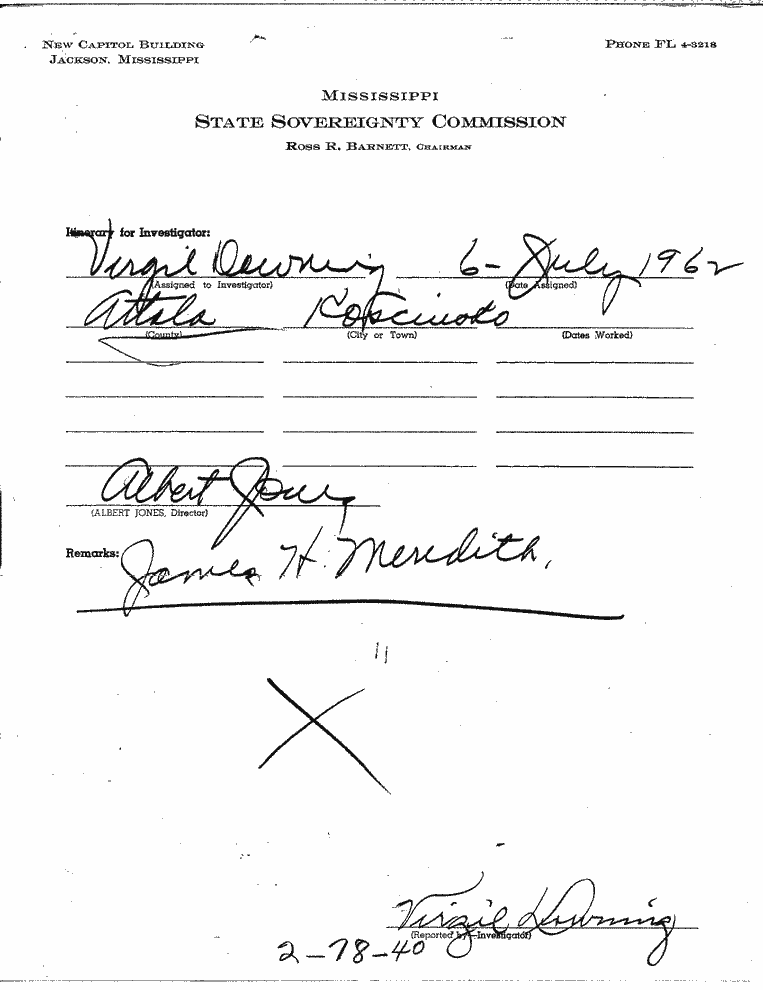 NEW CAPITOL BUILDING
JACKSON, MISSISSIPPI
PHONE FL 4-3218
MISSISSIPPI
STATE SOVEREIGNTY COMMISSION
ROSS R. BARNETT, CHAIRMAN
Itinerary for Investigator:
Virgil Downing 6-July 1962
(Assigned to Investigator) (Date Assigned)
Attala Kosciusko
(County) (City or Town) (Dates Worked)
Albert Jones
(ALBERT JONES, Director)
Remarks: James H. Meredith.
11
X
Virgil Downing
(Reported by Investigator)
2-78-40